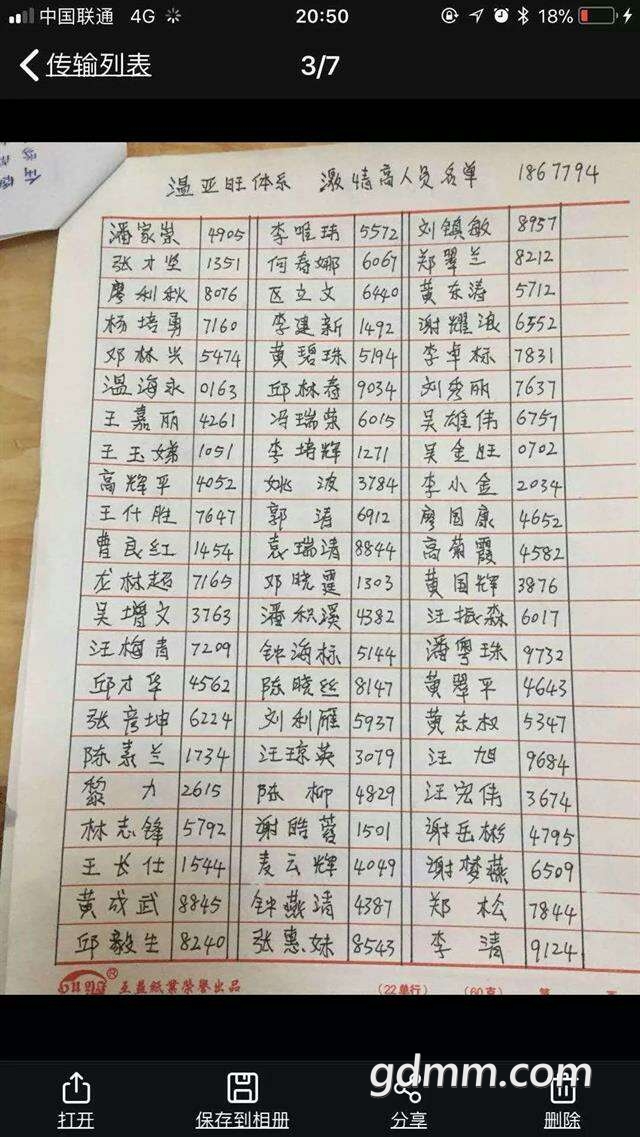 中国联通 4G 20:50 18%
传输列表 3/7
温亚旺体系 激情高人员名单 1867794
潘家崇 4905 李唯玮 5572 刘镇敏 8957
张才坚 1351 何春娜 6067 郑翠兰 8212
廖利秋 8076 区立文 6440 黄东涛 5712
杨培勇 7160 李建新 1492 谢耀浪 6552
邓林兴 5474 黄碧珠 5194 李卓标 7831
温海永 0163 邱林春 9034 刘秀丽 7637
王嘉丽 4261 冯瑞荣 6015 吴雄伟 6757
王玉娣 1051 李培辉 1271 吴金旺 0702
高辉平 4052 姚波 3784 李小金 2034
王仕胜 7647 郭涛 6912 廖国康 4652
曹良红 1454 袁瑞清 8844 高菊霞 4582
龙林超 7165 邓晓霆 1303 黄国辉 3876
吴增文 3763 潘积溪 4382 汪振淼 6017
汪梅青 7209 钟海标 5144 潘粤珠 9732
邱才华 4562 陈晓丝 8147 黄翠平 4643
张彦坤 6224 刘利雁 5937 黄东权 5347
陈素兰 1734 汪琼英 3079 汪旭 9684
黎力 2615 陈柳 4829 汪宏伟 3674
林志锋 5792 谢皓蓉 1501 谢岳彬 4795
王长仕 1544 麦云辉 4049 谢梦燕 6509
黄成武 8845 钟燕清 4387 郑松 7844
邱毅生 8240 张惠妹 8543 李清 9124
至益纸业荣誉出品 (22单行) (60克) 第
gdmm.com
打开 保存到相册 分享 删除